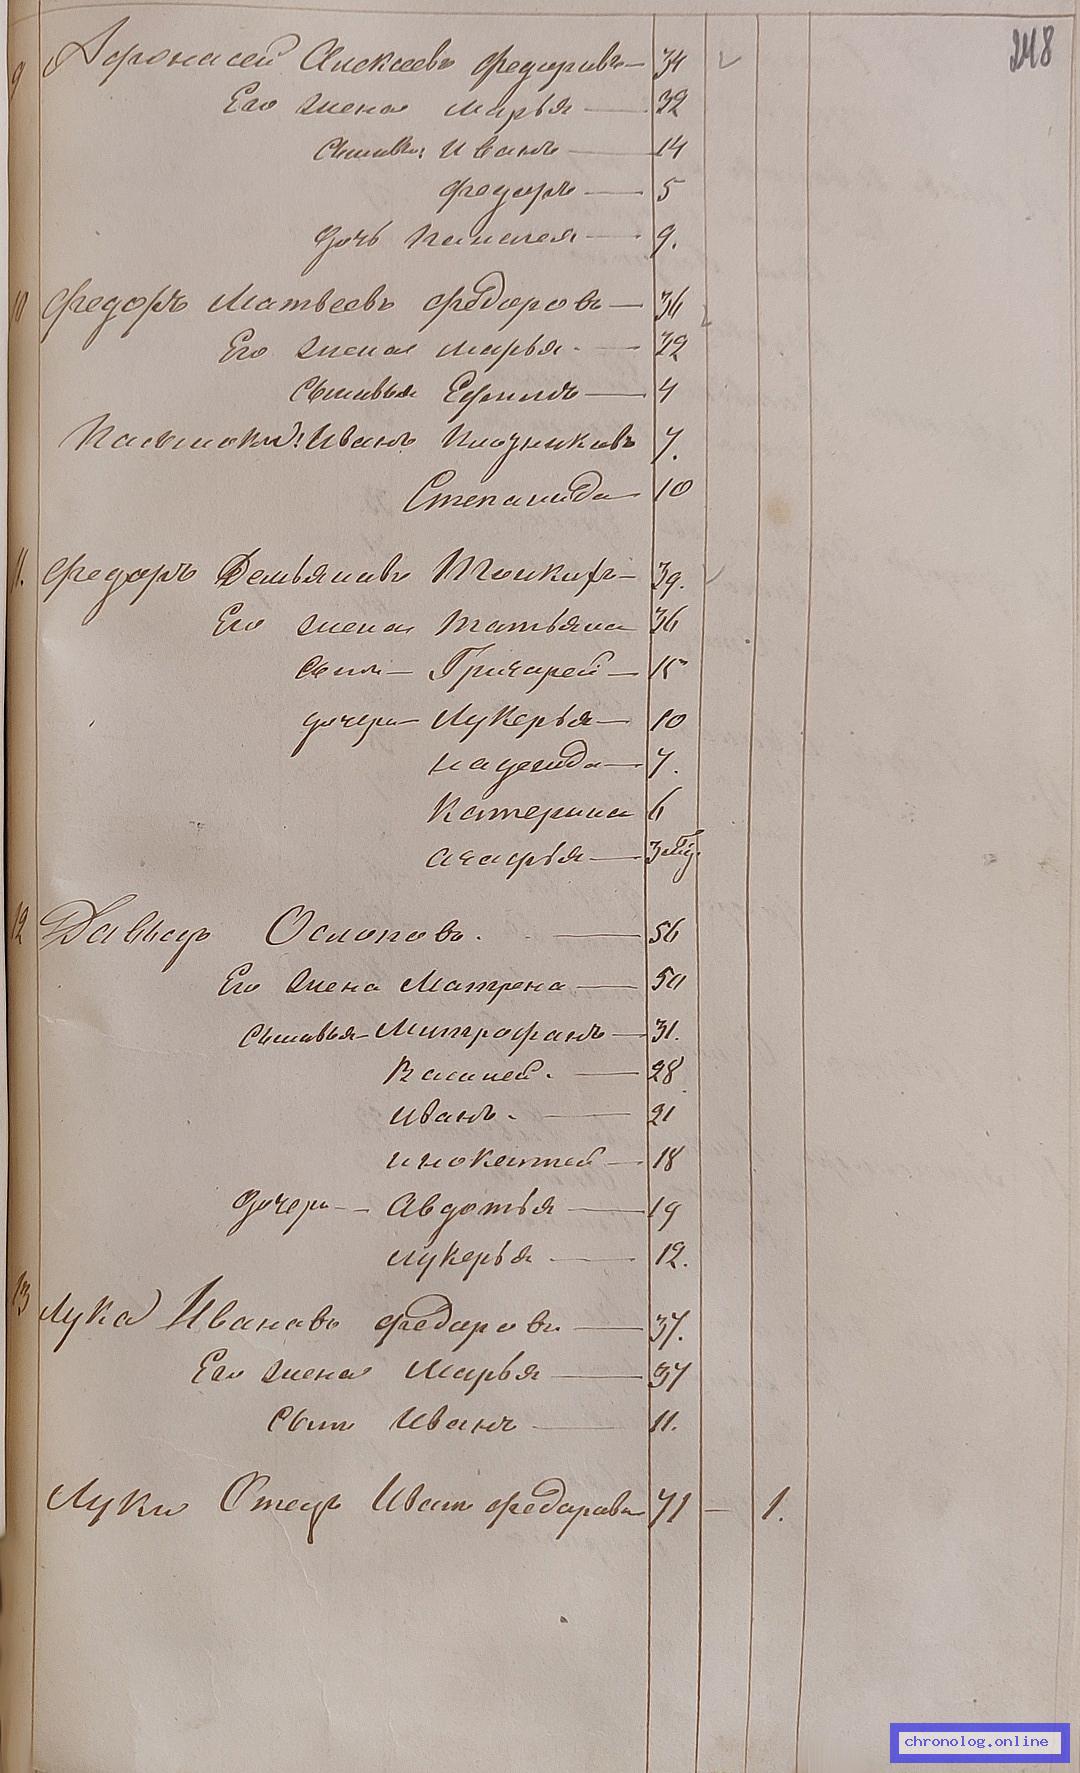 248
9 Афонасей Алексеевъ Федоровъ — 34
Его жена Марья — 32
Сыновья: Иванъ — 14
Федоръ — 5
дочь Пелагея — 9.
10 Федоръ Матвеевъ Федоровъ — 36
Его жена Марья — 32
Сыновья Ефимъ — 4
Иванъ 7.
Степанида — 10
11. Федоръ Демьяновъ — 39.
Его жена Татьяна 36
Сынъ — Григорей — 15
дочери — Лукерья — 10
Надежда — 7.
Катерина 6
Агафья — 3
12 Давыдъ Ослоповъ. — 56
Его жена Матрена — 50
Сыновья — Митрофанъ — 31.
Василей. — 28
Иванъ. — 21
Инокентей — 18
Дочери — Авдотья — 19
Лукерья — 12.
13 Лука Ивановъ Федоровъ — 37.
Его жена Марья — 37
Сынъ Иванъ — 11.
Луки Отецъ Иванъ Федоровъ 71 — 1.
chronolog.online